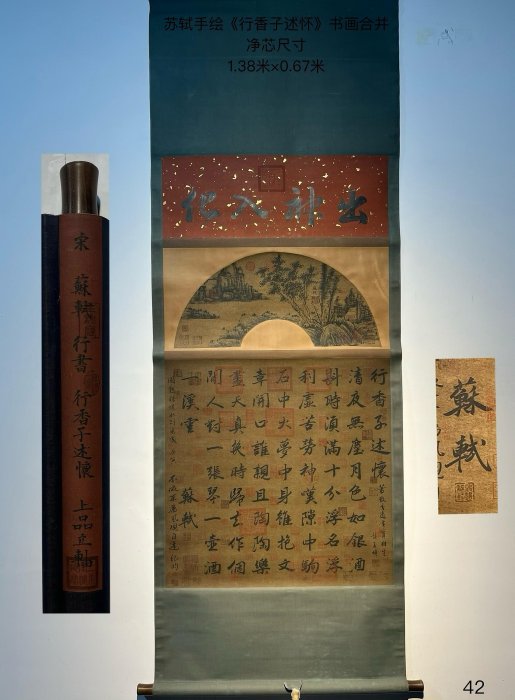 苏轼手绘《行香子述怀》书画合并
净芯尺寸
1.38米×0.67米
出神入化
宋 蘇軾 行書 行香子述懷 上品立軸
行香子述懷
清夜無塵月色如銀酒
斟時須滿十分浮名浮
利虛苦勞神嘆隙中駒
石中火夢中身雖抱文
章開口誰親且陶陶樂
盡天真幾時歸去作個
閒人對一張琴一壺酒
一溪雲 蘇軾
蘇軾
42